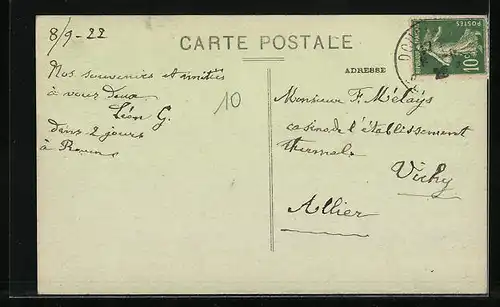 8/9-22
CARTE POSTALE
POSTES
10
ADRESSE
Nos souvenirs et amitiés
à vous Deux
Léon G.
dans 2 jours
à
10
Monsieur F. Mélaÿs
casino de l'établissement
thermal
Vichy
Allier